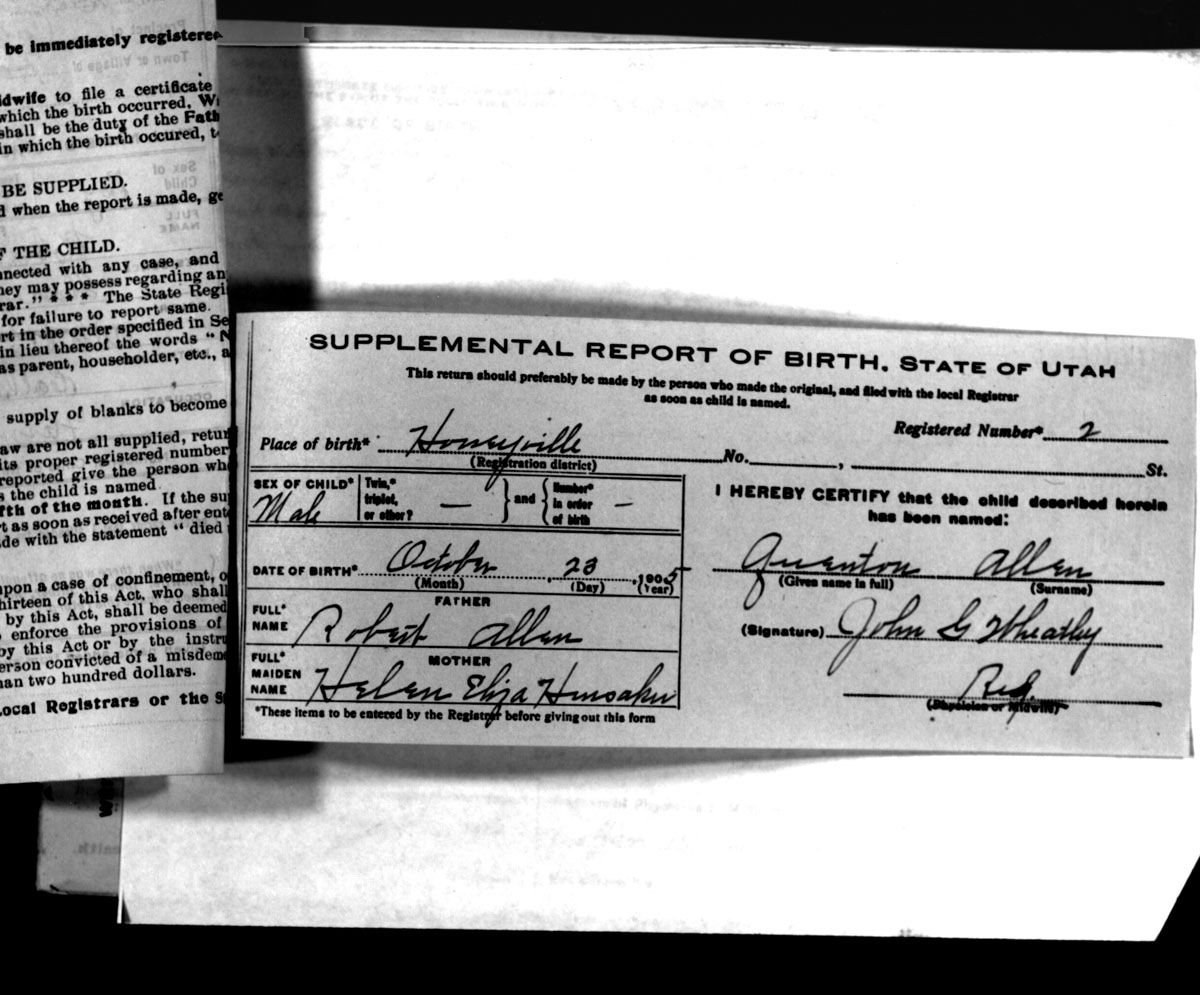 be immediately registered
idwife to file a certificate
which the birth occurred. W
shall be the duty of the Fath
in which the birth occured, t
BE SUPPLIED.
d when the report is made, ge
F THE CHILD.
nnected with any case, and
hey may possess regarding an
rar." * * * The State Regi
for failure to report same.
rt in the order specified in Se
in lieu thereof the words "N
as parent, householder, etc., a
supply of blanks to become
aw are not all supplied, retur
its proper registered number
reported give the person wh
s the child is named
fth of the month. If the su
t as soon as received after ent
de with the statement "died
upon a case of confinement, o
hirteen of this Act, who shall
by this Act, shall be deemed
o enforce the provisions of
by this Act or by the instru
erson convicted of a misdeme
han two hundred dollars.
Local Registrars or the S
SUPPLEMENTAL REPORT OF BIRTH. STATE OF UTAH
This return should preferably be made by the person who made the original, and filed with the local Registrar
as soon as child is named.
Registered Number* 2
Place of birth* Honeyville No. , St.
(Registration district)
SEX OF CHILD* Male
Twin,* triplet, or other? — and Number* in order of birth —
DATE OF BIRTH* October 23, 1905
(Month) (Day) (Year)
FATHER
FULL* NAME Robert Allen
MOTHER
FULL* MAIDEN NAME Helen Eliza Hunsaker
*These items to be entered by the Registrar before giving out this form
I HEREBY CERTIFY that the child described herein
has been named:
Quenton Allen
(Given name in full) (Surname)
(Signature) John G Wheatley
Reg.
(Physician or Midwife)